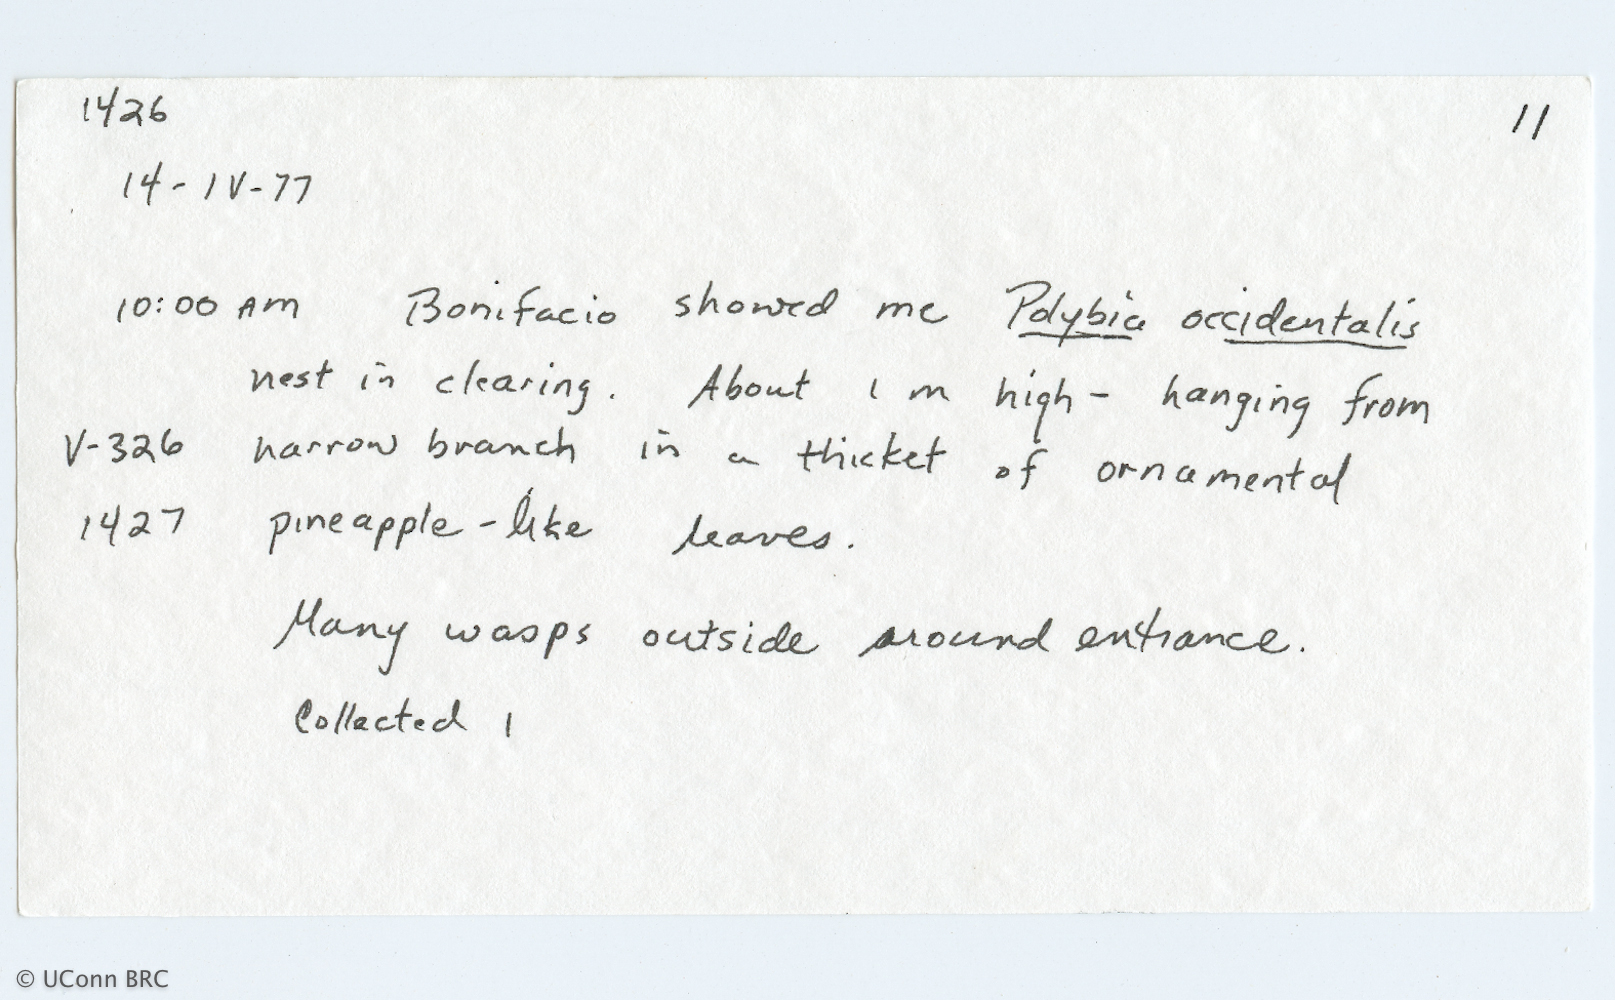 1426
11
14-IV-77
10:00 AM Bonifacio showed me Polybia occidentalis
nest in clearing. About 1 m high - hanging from
V-326 narrow branch in a thicket of ornamental
1427 pineapple-like leaves.
Many wasps outside around entrance.
Collected 1
© UConn BRC